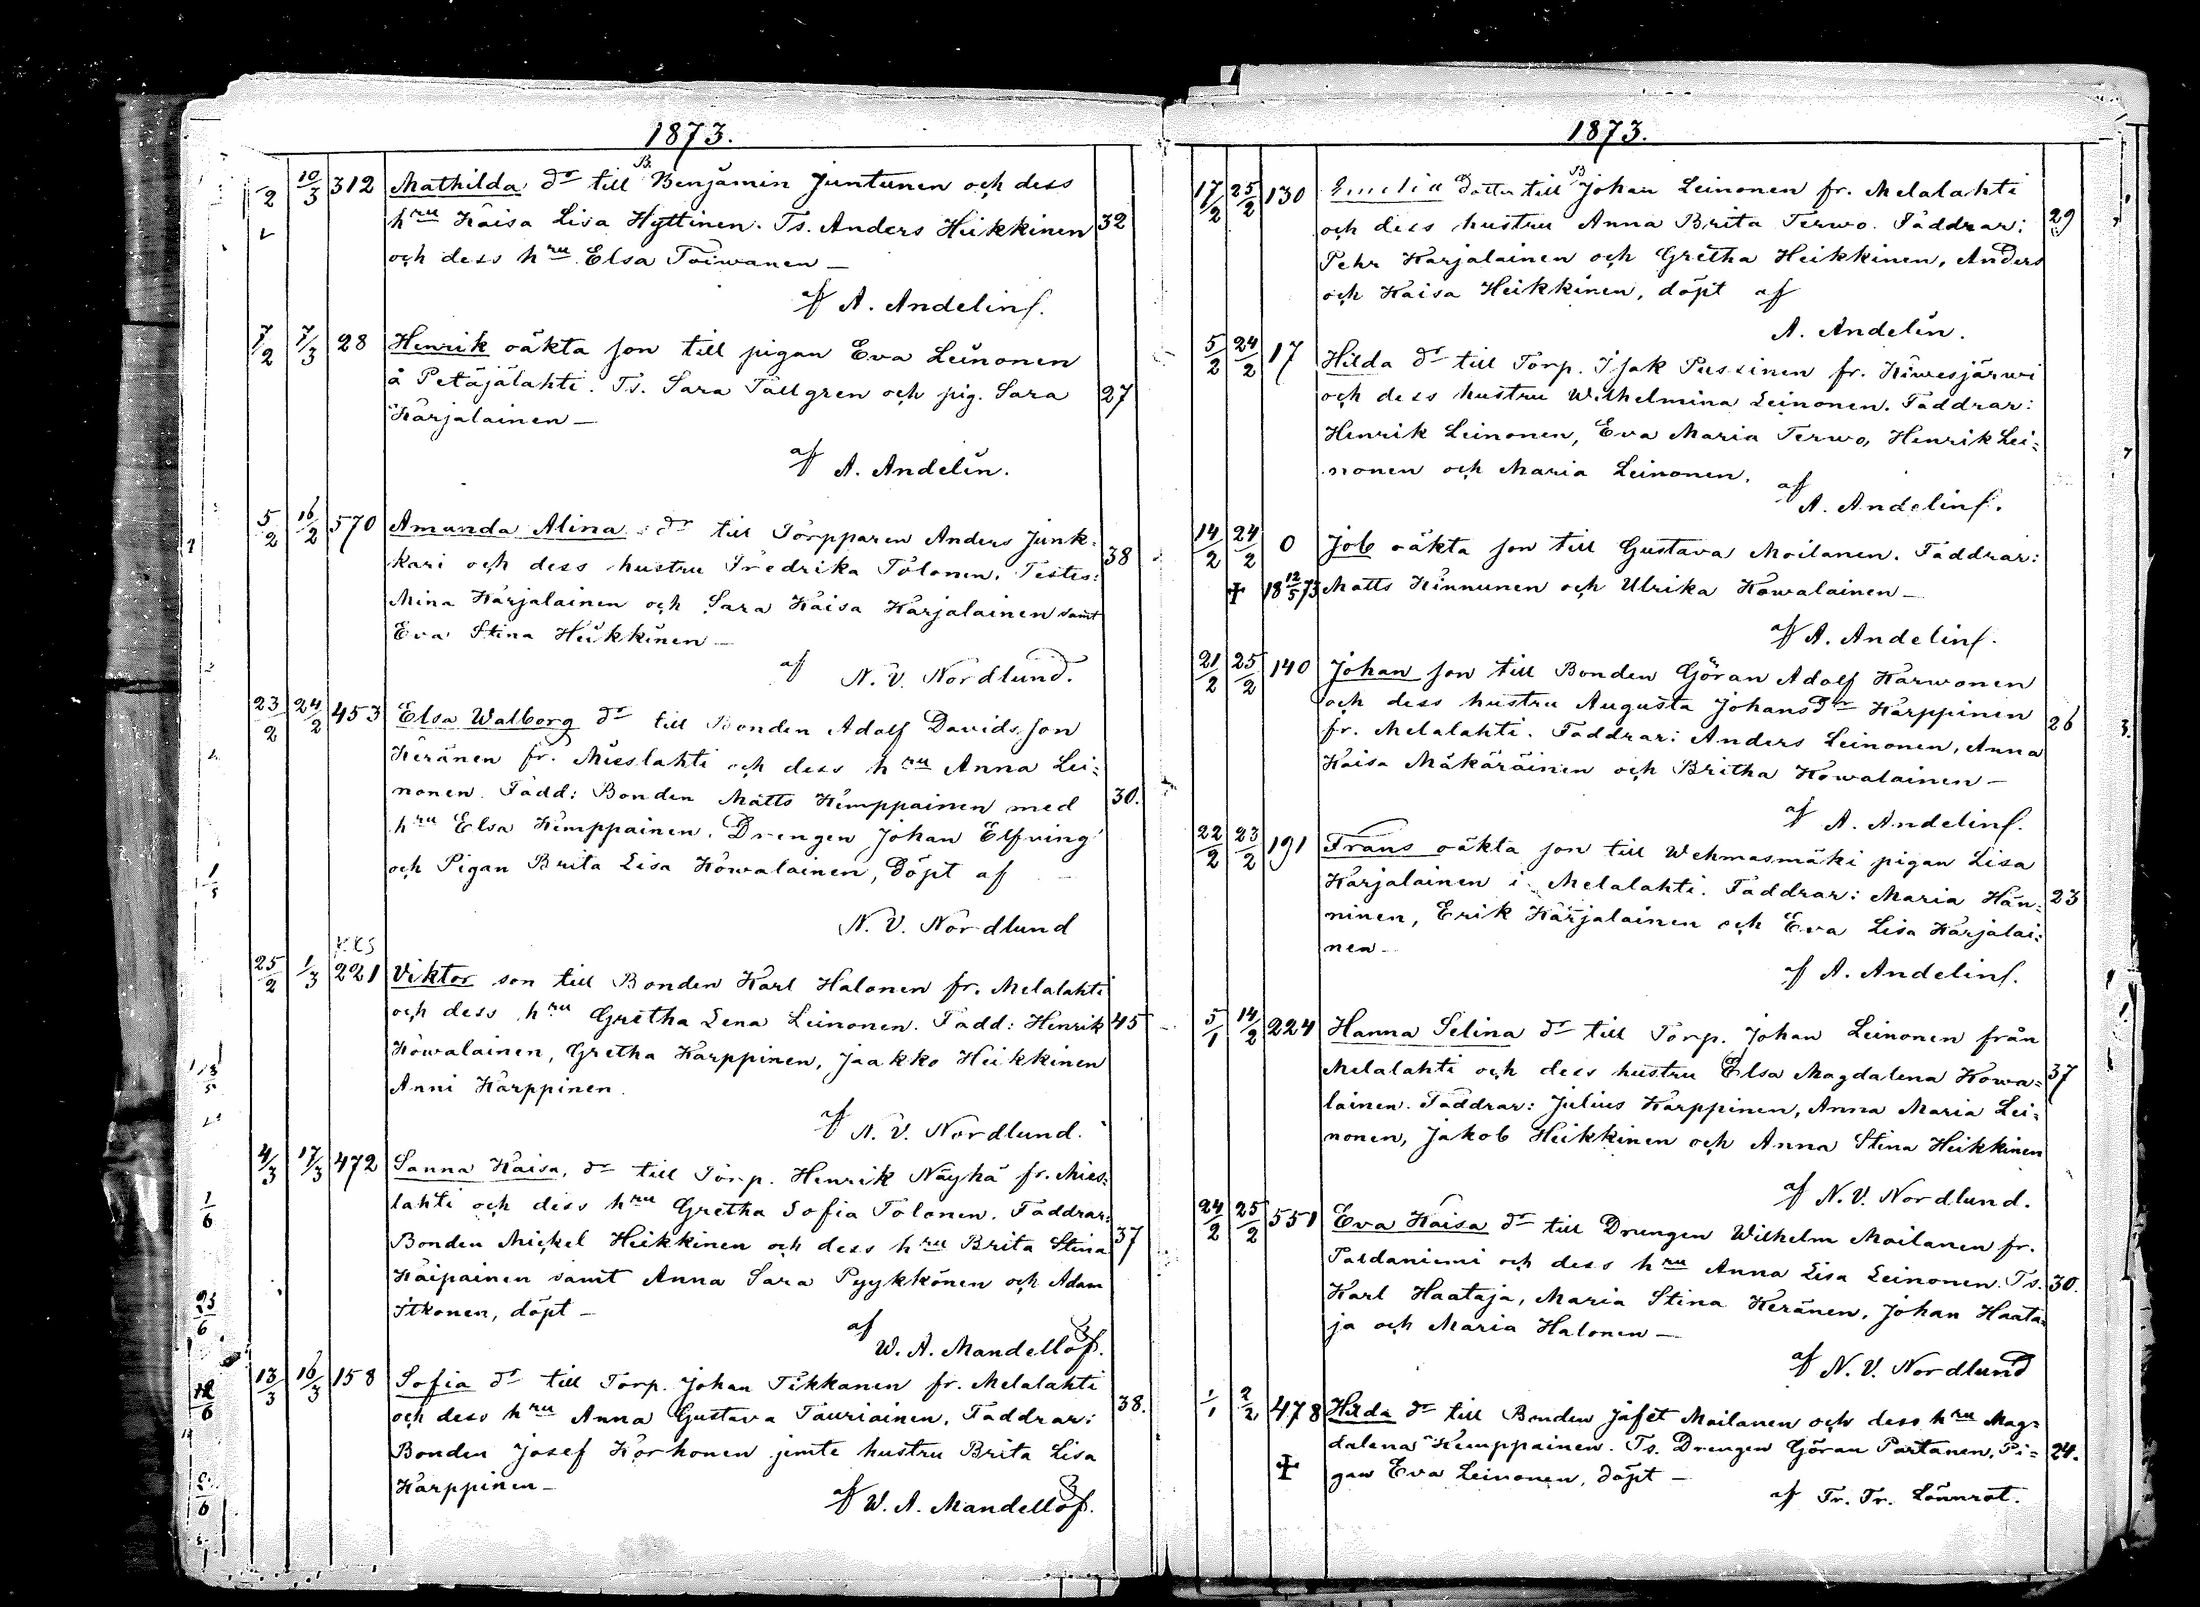 1873.
2 10/3 312 Mathilda dr till B. Benjamin Juntunen och dess
hru Kaisa Lisa Hyttinen. Ts. Anders Heikkinen 32
och dess hru Elsa Toiwanen —
af A. Andelin.
7/2 7/3 28 Henrik oäkta son till pigan Eva Leinonen
å Petäjälahti. Ts. Sara Tallgren och pig. Sara 27
Karjalainen —
af A. Andelin.
5/2 16/2 570 Amanda Alina dr till Torpparen Anders Junk-
kari och dess hustru Fredrika Tolonen. Testes: 38
Mina Karjalainen och Sara Kaisa Karjalainen samt
Eva Stina Heikkinen —
af N. V. Nordlund.
23/2 24/2 453 Elsa Walborg dr till Bonden Adolf Davidsson
Keränen fr. Mieslahti och dess hru Anna Lei-
nonen. Fadd: Bonden Matts Kemppainen med 30.
hru Elsa Kemppainen. Drengen Johan Elfving
och Pigan Brita Lisa Kowalainen, döpt af
N. V. Nordlund
KKS
25/2 1/3 221 Viktor son till Bonden Karl Halonen fr. Melalahti
och dess hru Gretha Lena Leinonen. Fadd: Henrik 45
Kowalainen, Gretha Karppinen, Jaakko Heikkinen
Anni Karppinen.
af N. V. Nordlund.
4/3 17/3 472 Sanna Kaisa, dr till Torp. Henrik Näyhä fr. Mies-
lahti och dess hru Gretha Sofia Tolonen. Faddrar:
Bonden Mickel Heikkinen och dess hru Brita Stina 37
Kaipainen samt Anna Sara Pyykkönen och Adam
Itkonen, döpt —
af W. A. Mandellöf.
13/3 16/3 158 Sofia dr till Torp. Johan Tikkanen fr. Melalahti
och dess hru Anna Gustava Tauriainen. Faddrar: 38.
Bonden Josef Korhonen jemte hustru Brita Lisa
Karppinen —
af W. A. Mandellöf.
1873.
17/2 25/2 130 Emelia dotter till B Johan Leinonen fr. Melalahti
och dess hustru Anna Brita Terwo. Faddrar: 29
Pehr Karjalainen och Gretha Heikkinen, Anders
och Kaisa Heikkinen, döpt af
A. Andelin.
5/2 24/2 17 Hilda dr till Torp. Isak Pussinen fr. Kiwesjärwi
och dess hustru Wilhelmina Leinonen. Faddrar:
Henrik Leinonen, Eva Maria Terwo, Henrik Lei-
nonen och Maria Leinonen.
af A. Andelin.
14/2 24/2 0 Job oäkta son till Gustava Moilanen. Faddrar:
✝ 18 12/5 73 Matts Kinnunen och Ulrika Kowalainen —
af A. Andelin.
21/2 25/2 140 Johan son till Bonden Göran Adolf Karwonen
och dess hustru Augusta Johansdr Karppinen 26
fr. Melalahti. Faddrar: Anders Leinonen, Anna
Kaisa Mäkäräinen och Britha Kowalainen —
af A. Andelin.
22/2 23/2 191 Frans oäkta son till Wehmasmäki pigan Lisa
Karjalainen i Melalahti. Faddrar: Maria Hän- 23
ninen, Erik Karjalainen och Eva Lisa Karjalai-
nen —
af A. Andelin.
5/1 14/2 224 Hanna Selina dr till Torp. Johan Leinonen från
Melalahti och dess hustru Elsa Magdalena Kowa- 37
lainen. Faddrar: Julius Karppinen, Anna Maria Lei-
nonen, Jakob Heikkinen och Anna Stina Heikkinen
af N. V. Nordlund.
24/2 25/2 551 Eva Kaisa dr till Drengen Wilhelm Moilanen fr.
Paldaniemi och dess hru Anna Lisa Leinonen. Ts. 30.
Karl Haataja, Maria Stina Keränen, Johan Haata-
ja och Maria Halonen —
af N. V. Nordlund
1/1 2/2 478 Hilda dr till Bonden Jafet Moilanen och dess hru Mag-
dalena Kemppainen. Ts. Drengen Göran Partanen, Pi- 24.
✝ gan Eva Leinonen, döpt —
af Fr. Fr. Lönnrot.